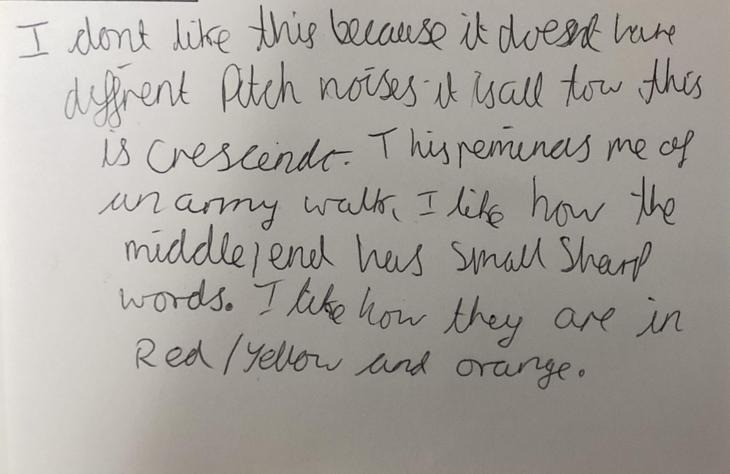 I dont like this because it doesnt have
diffrent Pitch noises it is all low this
is crescendo. This reminds me of
an army walk, I like how the
middle/end has small sharp
words. I like how they are in
Red/yellow and orange.